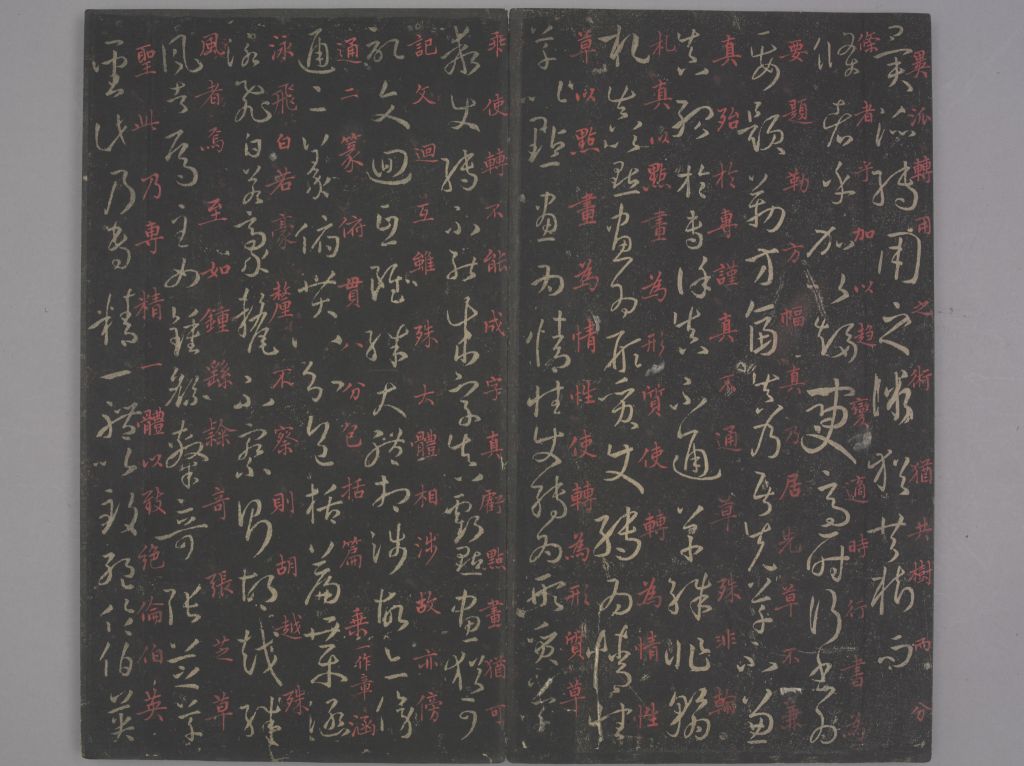 異派轉用之術猶共樹而分
條者乎加以趨變適時行書為
要題勒方幅真乃居先草不兼
真殆於專謹真不通草殊非翰
札真以點畫為形質使轉為情性
草以點畫為情性使轉為形質草
乖使轉不能成字真虧點畫猶可
記文迴互雖殊大體相涉故亦傍
通二篆俯貫八分包括篇乗一作章涵
泳飛白若豪釐不察則胡越殊
風者焉至如鍾繇隸奇張芝草
聖此乃專精一體以致絕倫伯英